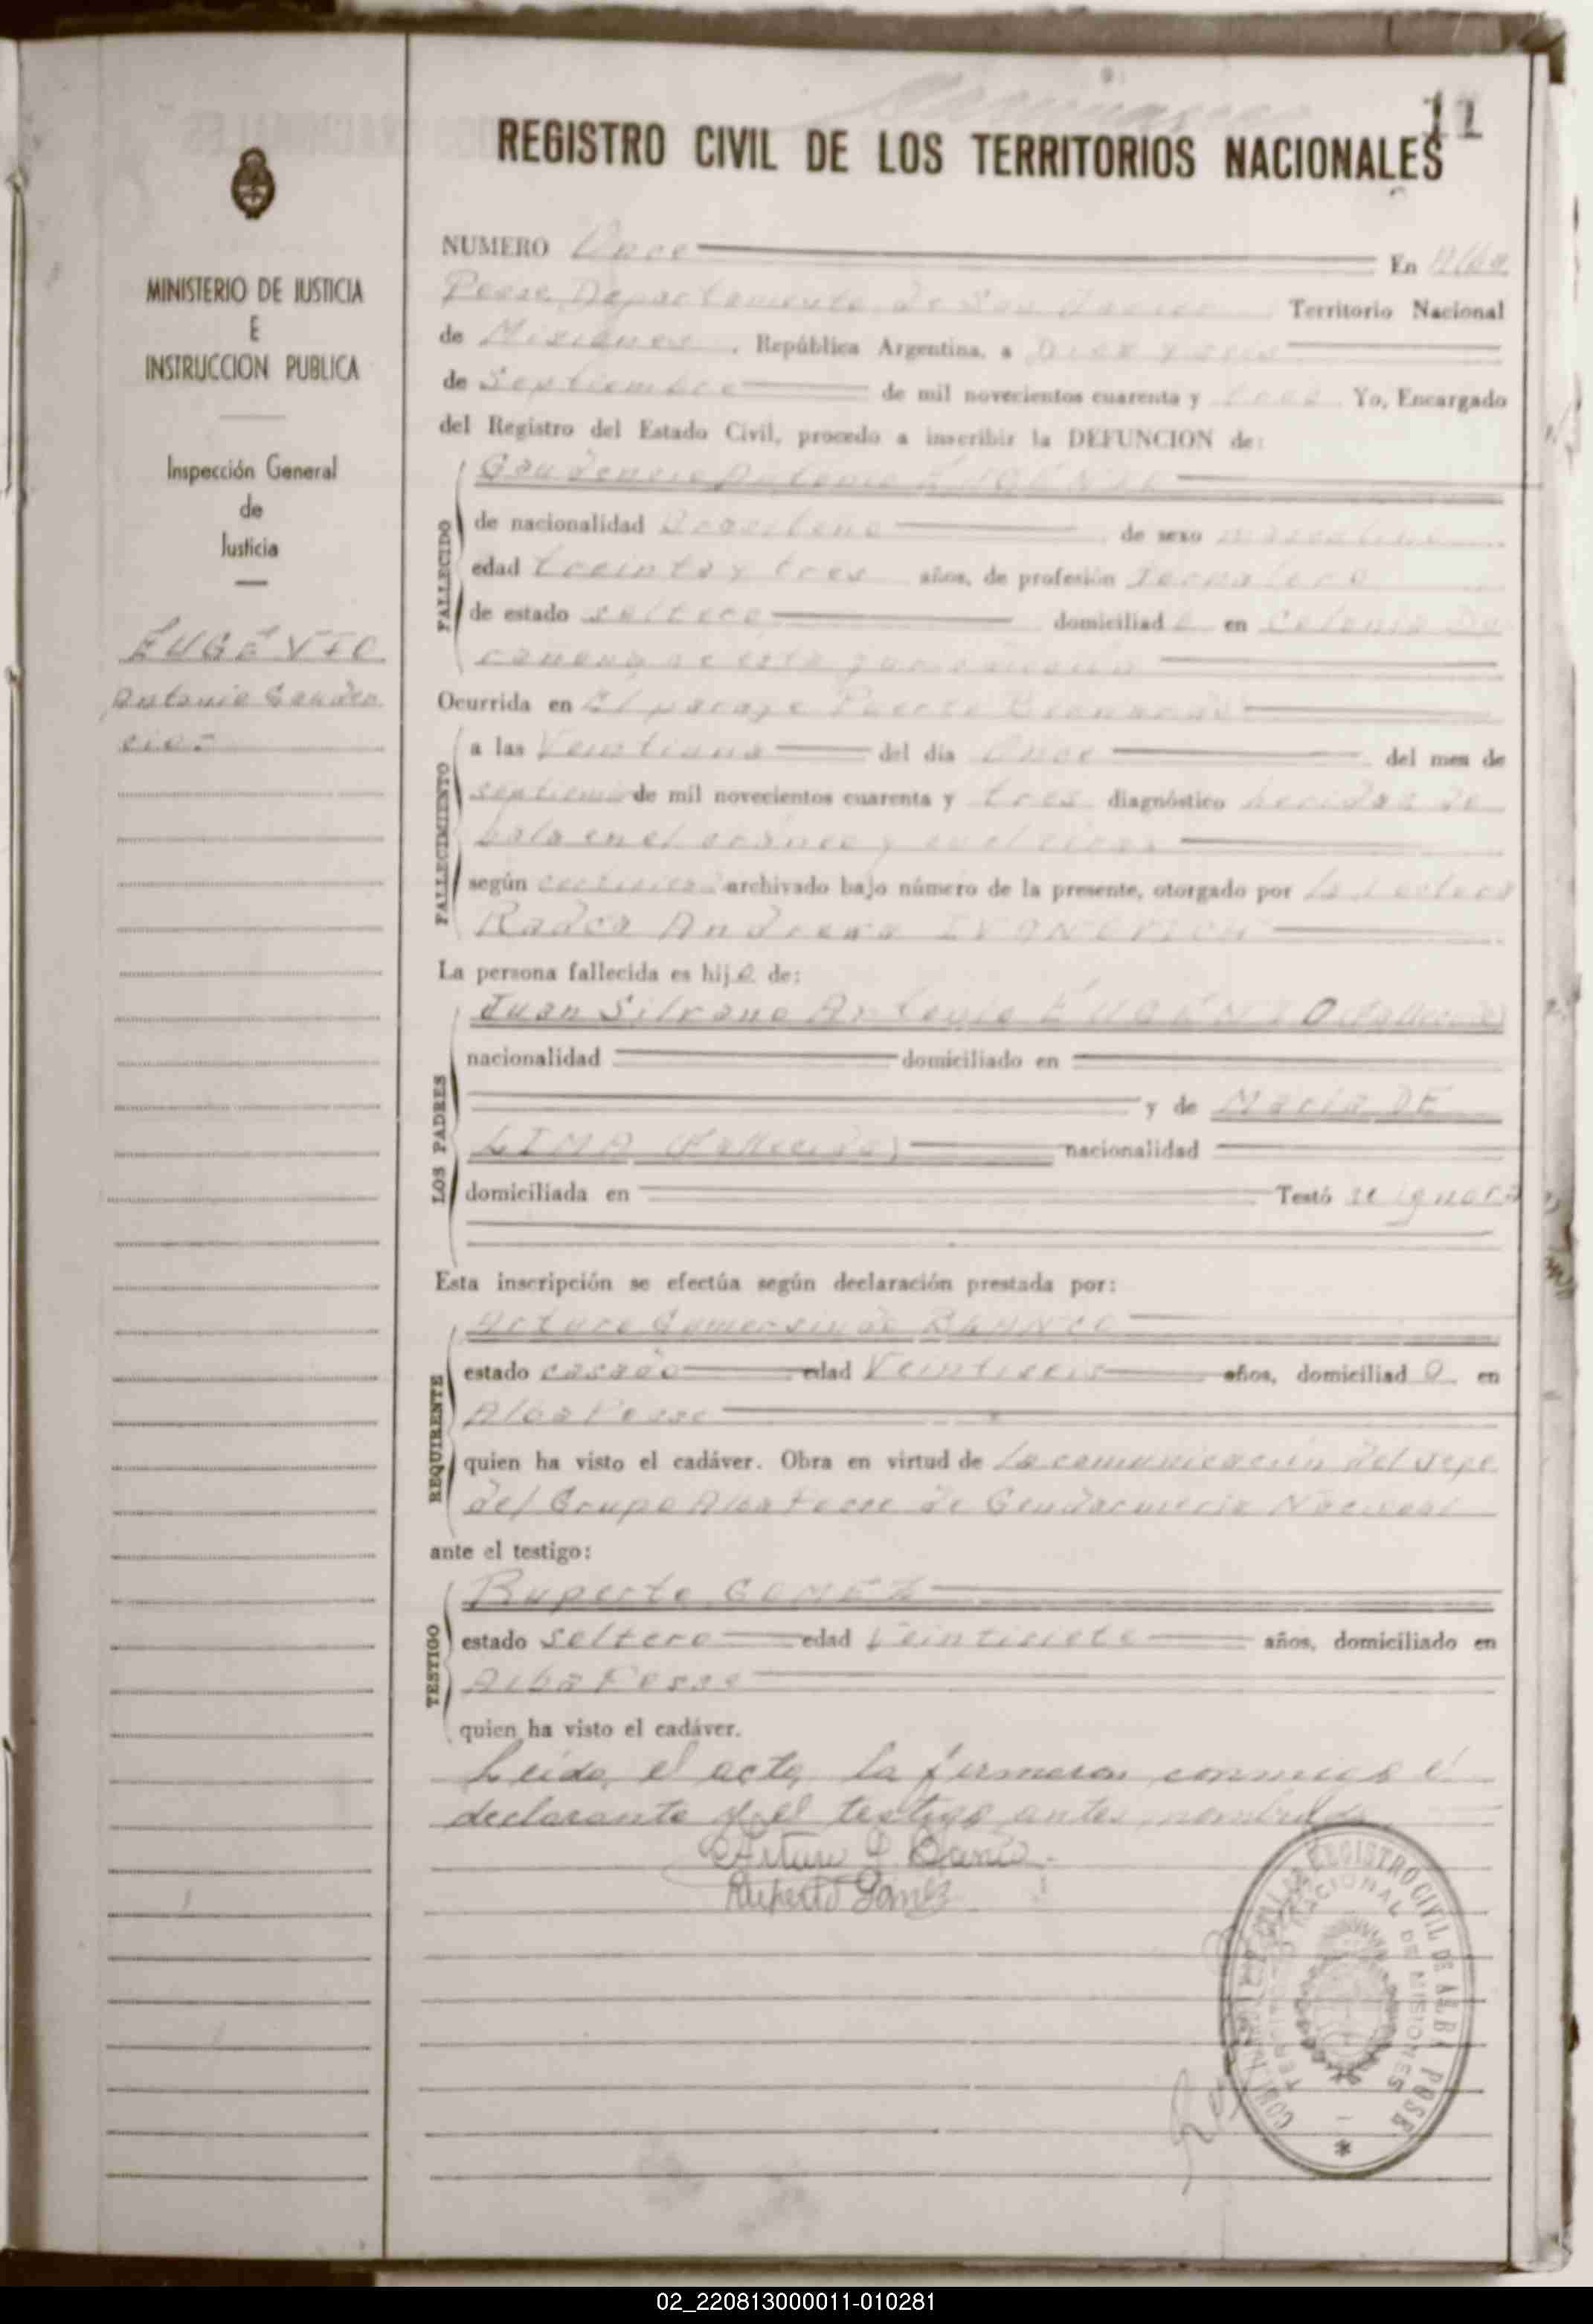 11
REGISTRO CIVIL DE LOS TERRITORIOS NACIONALES
MINISTERIO DE JUSTICIA
E
INSTRUCCION PUBLICA
Inspección General
de
Justicia
ÉUGÉNIO
Antonio Gauden
cio.-
NUMERO Once En Alba
Posse, Departamento de San Javier Territorio Nacional
de Misiones, República Argentina, a Diez y seis
de Septiembre de mil novecientos cuarenta y tres Yo, Encargado
del Registro del Estado Civil, procedo a inscribir la DEFUNCION de:
FALLECIDO
Gaudencio Antonio ÉUGÉNIO
de nacionalidad Brasileno de sexo masculino
edad treinta y tres años, de profesión Jornalero
de estado soltero domiciliado en Colonia
de esta jurisdicción
Ocurrida en El paraje Puerto
FALLECIMIENTO
a las Veintiuna del día Once del mes de
septiem de mil novecientos cuarenta y tres diagnóstico heridas de
bala en el cráneo y en el
según certificado archivado bajo número de la presente, otorgado por la doctora
Radca Andreva IVANOVICH
La persona fallecida es hijo de:
LOS PADRES
Juan Silvano Antonio ÉUGÉNIO (fallecido)
nacionalidad domiciliado en
y de María DE
LIMA (fallecida) nacionalidad
domiciliada en Testó se ignora
Esta inscripción se efectúa según declaración prestada por:
REQUIRENTE
Arturo Gumersindo BLANCO
estado casado edad Veintiseis años, domiciliado en
Alba Posse
quien ha visto el cadáver. Obra en virtud de la comunicación del Jefe
del Grupo Alba Posse de Gendarmería Nacional
ante el testigo:
TESTIGO
Ruperto GOMEZ
estado soltero edad Veintisiete años, domiciliado en
Alba Posse
quien ha visto el cadáver.
Leída el acta, la firmaron conmigo el
declarante y el testigo antes nombrado
Arturo G Blanco.-
Ruperto Gomez
REGISTRO CIVIL DE ALBA POSSE
TERRITORIO NACIONAL DE MISIONES
02_220813000011-010281